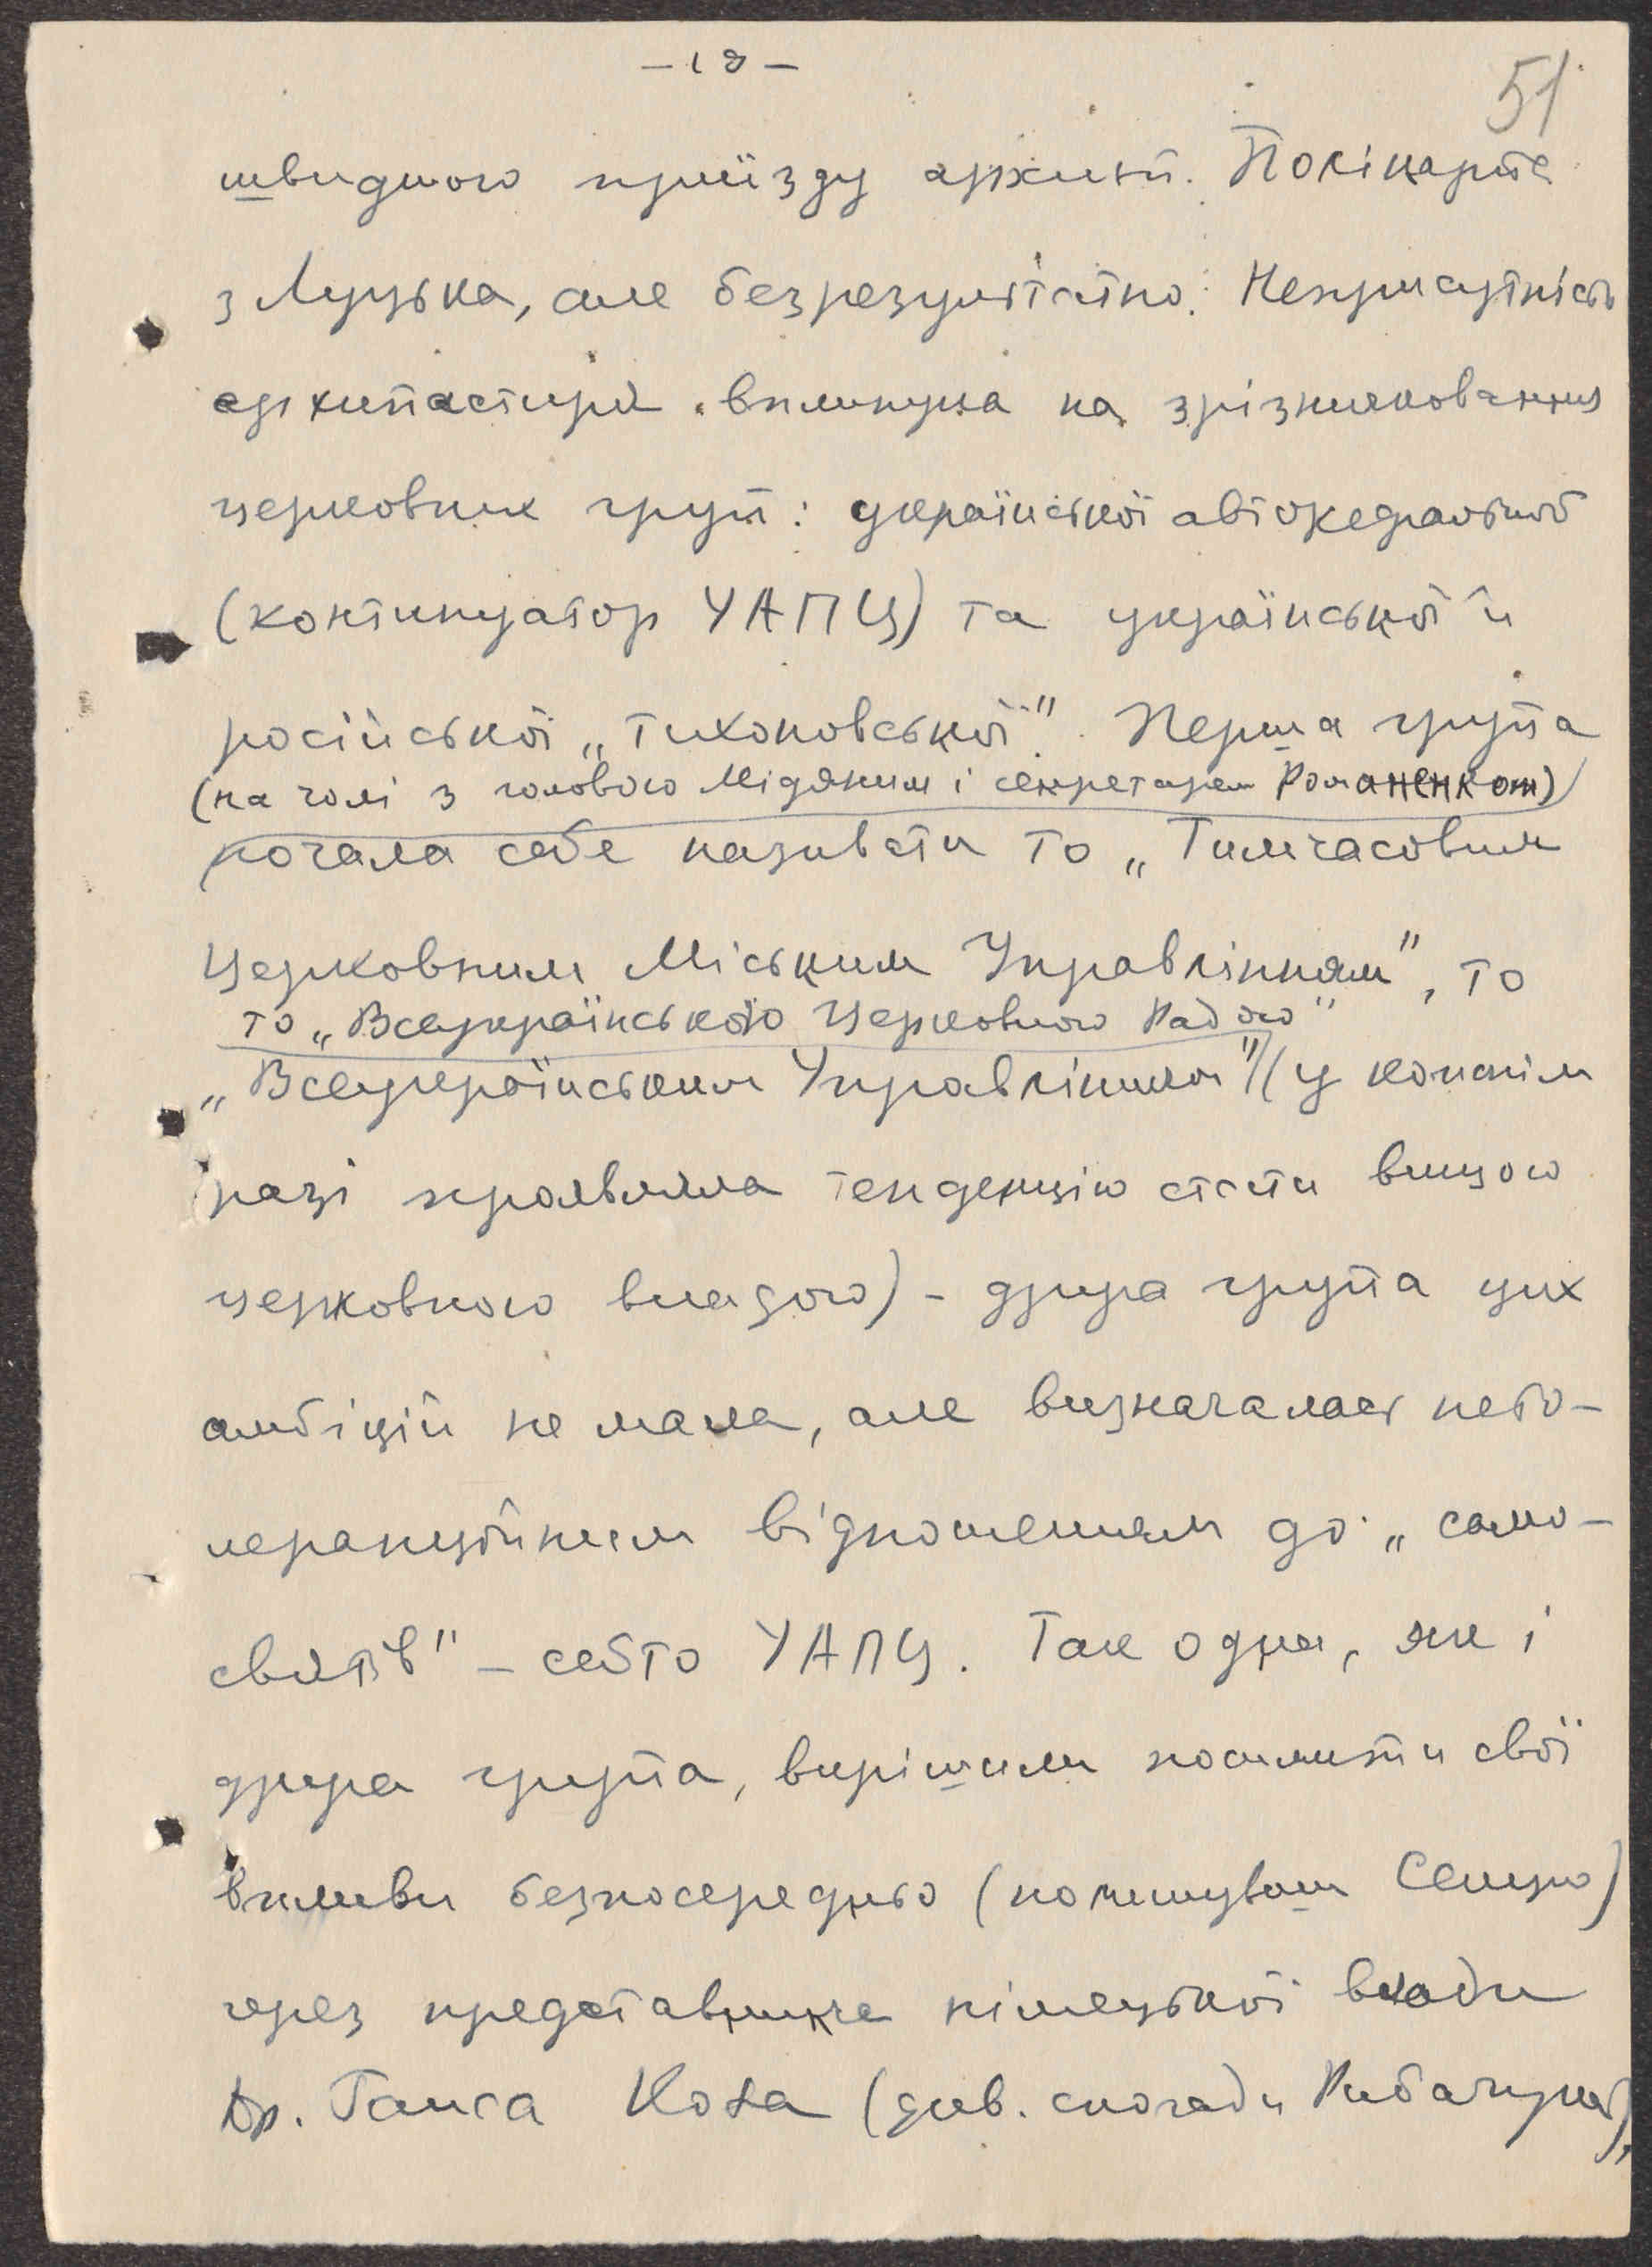 – 18 –
51
швидкого приїзду архиєп. Полікарпа
з Луцька, але безрезультатно. Неприсутність
архипастиря вплинула на зрізничкування
церковних груп: української автокефальної
(континуатор УАПЦ) та української й
російської „тихоновської". Перша група
(на чолі з головою Мідяним і секретарем Романенком)
почала себе називати то „Тимчасовим
Церковним Міським Управлінням", то
то „Всеукраїнською Церковною Радою"
„Всеукраїнським Управлінням" (у кожнім
разі проявляла тенденцію стати вищою
церковною владою) – друга група цих
амбіцій не мала, але визначалась нето-
леранційним відношенням до „само-
святів" – себто УАПЦ. Так одна, як і
друга група, вирішили посилити свої
впливи безпосередньо
через представника німецької влади
Др. Ганса Коха (див. спогади Рибачука),